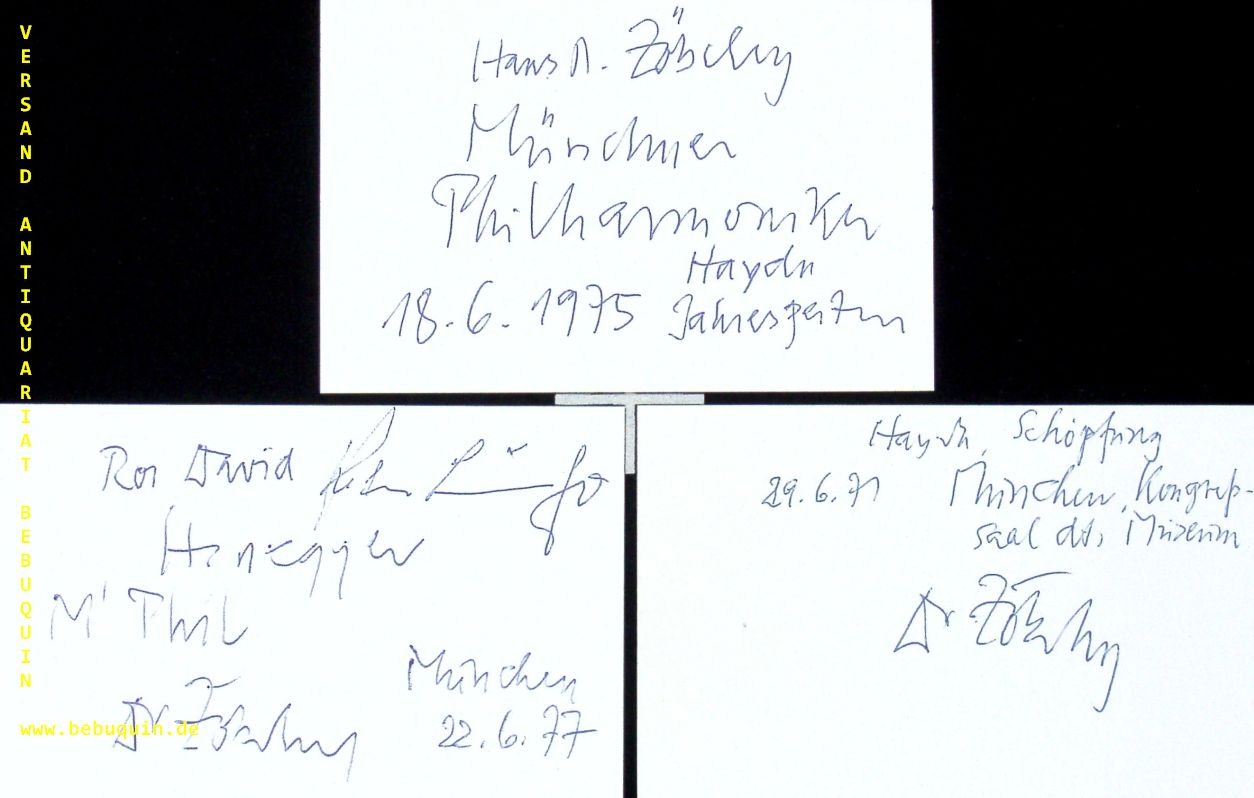 VERSAND ANTIQUARIAT BEBUQUIN
Hans R. Zöbeley
Münchner
Philharmoniker
Haydn
18.6.1975 Jahreszeiten
Roi David
Honegger
M' Phil
München
Dr Zöbeley
22.6.77
www.bebuquin.de
Haydn, Schöpfung
29.6.71 München, Kongreß-
saal dt. Museum
Dr Zöbeley